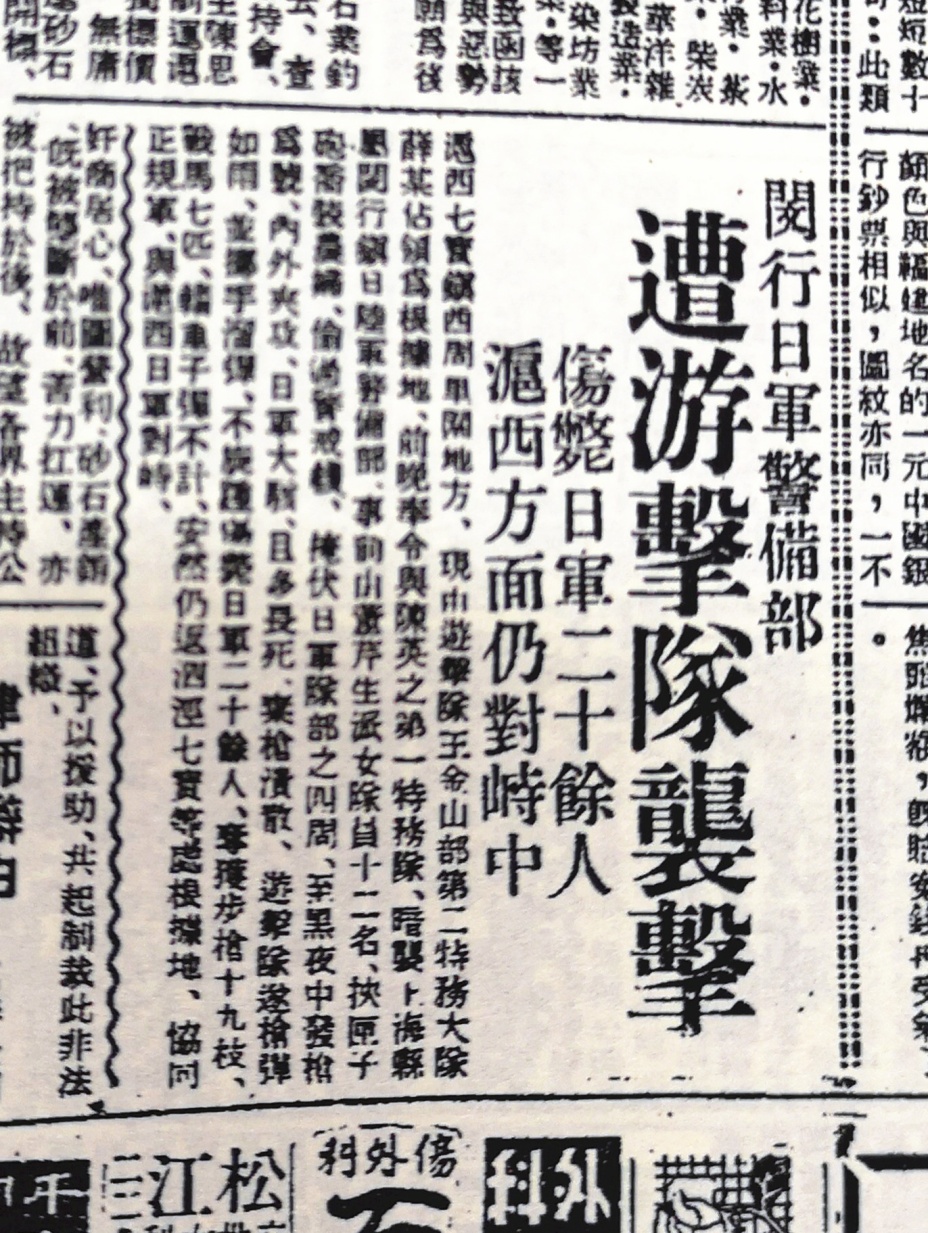 短短數十
句：此類
顏色與福建地名的一元中國銀
行鈔票相似，圖紋亦同，一不
。
花樹業·
料業·水
柴炭
華洋雜
製造業·
染坊業
業·等一
致函該
與惡勢
願爲後
石業釣
去、查
持會、
主陳思
無庸
砂石
開標、
閔行日軍警備部
遭游擊隊襲擊
傷斃日軍二十餘人
滬西方面仍對峙中
滬西七寶鎮西周里關地方、現由遊擊隊王金山部第二特務大隊
薛某佔領爲根據地、前晚奉令與陳英之第一特務隊、暗襲上海縣
閔行鎮日陸軍警備部、事前由黃芹生派女隊員十二名、挾匣子
砲喬裝農婦、偷過警戒線、掩伏日軍隊部之四周、至黑夜中發槍
爲號、內外夾攻、日軍大駭、且多長死、棄槍潰散、遊擊隊遂槍彈
如雨、並擲手溜彈、不旋踵傷斃日軍二十餘人、奪獲步槍十九枝、
戰馬七匹、輜車子彈不計、安然仍返泗涇七寶等處根據地、協同
正規軍、與滬西日軍對峙、
奸商居心、唯圖營利、砂石產銷
、既被壟斷於前、苦力扛運、亦
被把持於後、故望各界主持公
道、予以援助、共起制裁此非法
組織、
律師
傷外科
外科
松江